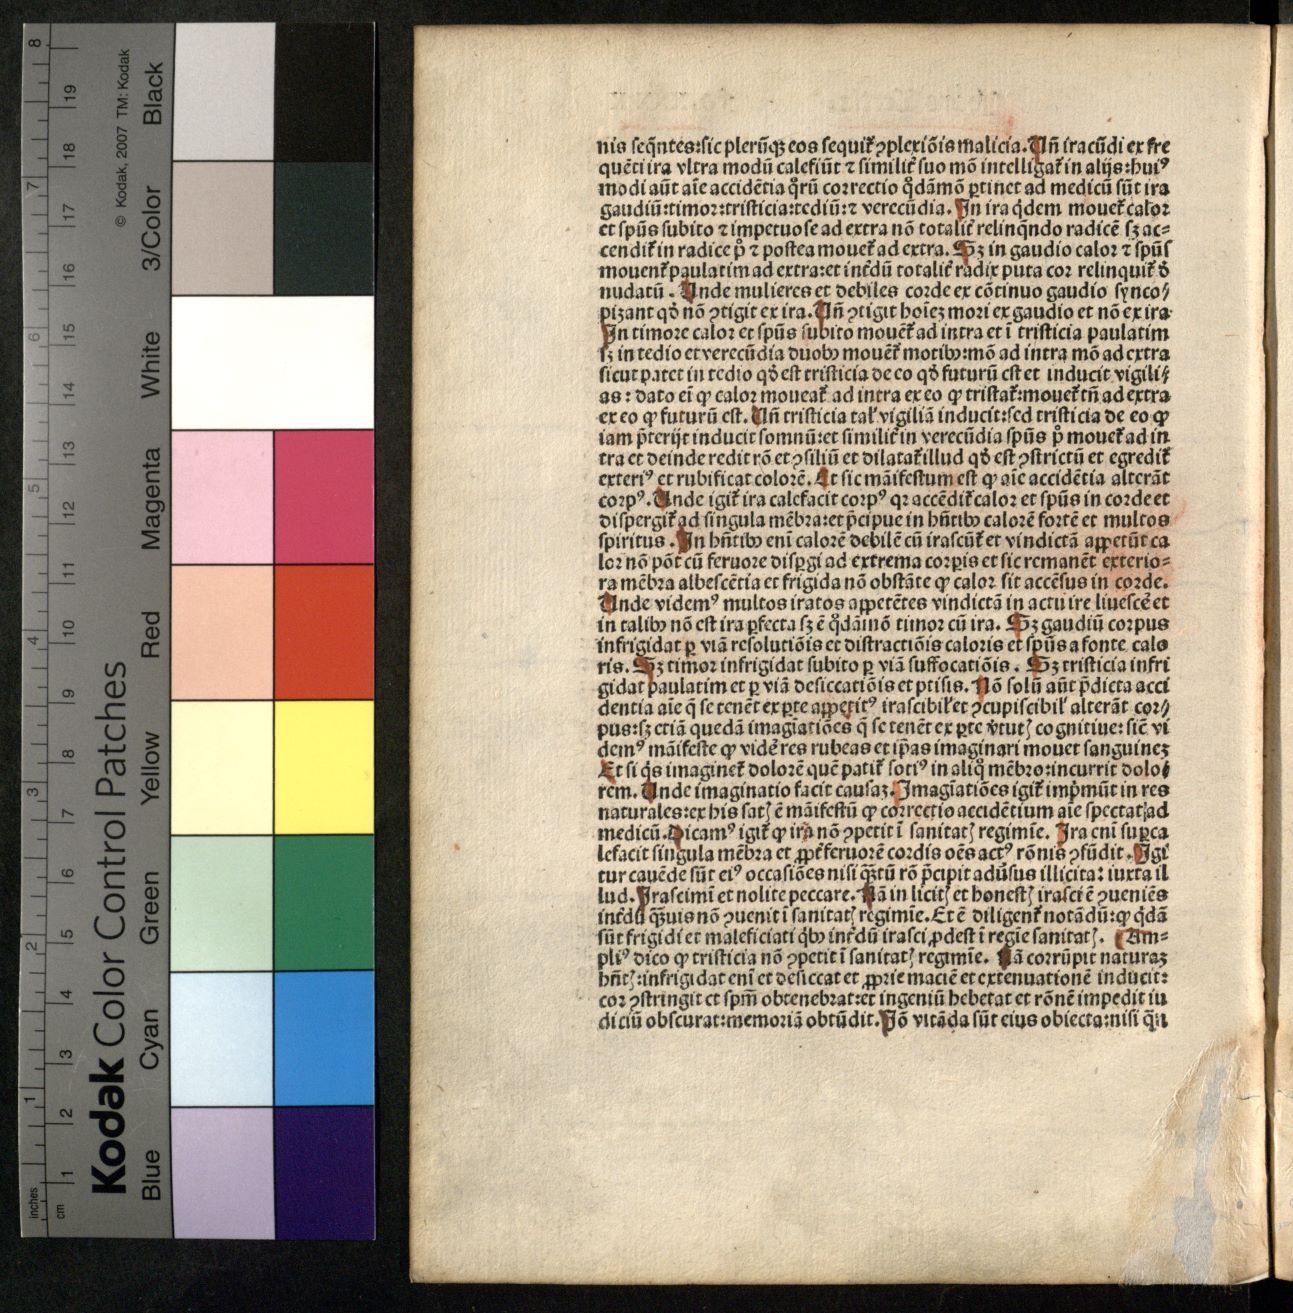 Kodak Color Control Patches
© Kodak, 2007 TM: Kodak
Blue Cyan Green Yellow Red Magenta White 3/Color Black
inches 1 2 3 4 5 6 7 8
cm 1 2 3 4 5 6 7 8 9 10 11 12 13 14 15 16 17 18 19
nis seq̃ntes:sic plerũqꝫ eos sequit᷑ ꝯplexiõis malicia. Uñ iracũdi ex fre
quẽti ira vltra modũ calefiũt ⁊ similit᷑ suo mõ intelligat᷑ in alijs:huiꝰ
modi aũt aĩe accidẽtia qͦrũ correctio qͦdãmõ ꝑtinet ad medicũ sũt ira
gaudiũ:timor:tristicia:tediũ:⁊ verecũdia. In ira q̇dem mouet᷑ calor
et spũs subito ⁊ impetuose ad extra nõ totalit᷑ relinq̃ndo radicẽ sꝫ ac=
cendit᷑ in radice pͦ ⁊ postea mouet᷑ ad extra. Sꝫ in gaudio calor ⁊ spũs
mouent᷑ paulatim ad extra:et int᷑dũ totalit᷑ radix puta cor relinquit᷑ d̕
nudatũ. Unde mulieres et debiles corde ex cõtinuo gaudio synco/
pizant qd̕ nõ ꝯtigit ex ira. Uñ ꝯtigit hoĩeꝫ mori ex gaudio et nõ ex ira.
In timore calor et spũs subito mouẽt᷑ ad intra et ĩ tristicia paulatim
sꝫ in tedio et verecũdia duobꝰ mouẽt᷑ motibꝰ:mõ ad intra mõ ad extra
sicut patet in tedio qd̕ est tristicia de eo qd̕ futurũ est et inducit vigili/
as: dato eĩ ꝙ calor moueat᷑ ad intra ex eo ꝙ tristat᷑:mouet᷑ tñ ad extra
ex eo ꝙ futurũ est. Uñ tristicia tal̕ vigiliã inducit:sed tristicia de eo ꝙ
iam p̃terijt inducit somnũ:et similit᷑ in verecũdia spũs pͦ mouet᷑ ad in
tra et deinde redit rõ et ꝯsiliũ et dilatat᷑ illud qd̕ est ꝯstrictũ et egredit᷑
exteriꝰ et rubificat colorẽ. Et sic mãifestum est ꝙ aĩe accidẽtia alterãt
corpꝰ. Unde igit᷑ ira calefacit corpꝰ qꝛ accẽdit᷑ calor et spũs in corde et
dispergit᷑ ad singula mẽbra:et p̃cipue in hñtibꝰ calorẽ fortẽ et multos
spiritus. In hñtibꝰ enĩ calorẽ debilẽ cũ irascũt᷑ et vindictã appetũt ca
lor nõ põt cũ feruore disꝑgi ad extrema corꝑis et sic remanẽt exterio=
ra mẽbra albescẽtia et frigida nõ obstãte ꝙ calor sit accẽsus in corde.
Unde videmꝰ multos iratos appetẽtes vindictã in actu ire liuescẽ et
in talibꝰ nõ est ira ꝑfecta sꝫ ẽ qͦdãmõ timor cũ ira. Sꝫ gaudiũ corpus
infrigidat ꝑ viã resolutiõis et distractiõis caloris et spũs a fonte calo
ris. Sꝫ timor infrigidat subito ꝑ viã suffocatiõis. Sꝫ tristicia infri
gidat paulatim et ꝑ viã desiccatiõis et ptisis. Nõ solũ aũt p̃dicta acci
dentia aĩe q̃ se tenẽt ex ꝑte appetitꝰ irascibil̕ et ꝯcupiscibil̕ alterãt cor/
pus:sꝫ etiã quedã imagĩatiões q̃ se tenẽt ex ꝑte v̕tutꝭ cognitiue: siẽ vi
demꝰ mãifeste ꝙ videre res rubeas et ip̃as imaginari mouet sanguineꝫ
Et si q̇s imaginet᷑ dolorẽ quẽ patit᷑ sotiꝰ in aliqͦ mẽbro:incurrit dolo/
rem. Unde imaginatio facit causaꝫ. Imagĩatiões igit᷑ imp̃mũt in res
naturales:ex his satꝭ ẽ mãifestũ ꝙ correctio accidẽtium aĩe spectat ad
medicũ. Dicamꝰ igit᷑ ꝙ ira nõ ꝯpetit ĩ sanitatꝭ regimĩe. Ira enĩ suꝑca
lefacit singula mẽbra et ꝓpt᷑ feruorẽ cordis oẽs actꝰ rõnis ꝯfũdit. Igi
tur cauẽde sũt eiꝰ occasiões nisi q̃ꝫtũ rõ p̃cipit adũ̕sus illicita: iuxta il
lud. Irascimĩ et nolite peccare. Nã in licitꝭ et honestꝭ irasci ẽ ꝯueniẽs
int᷑dũ q̃ꝫuis nõ ꝯuenit ĩ sanitatꝭ regimĩe. Et ẽ diligent᷑ notãdũ:ꝙ q̇dã
sũt frigidi et maleficiati q̇bꝰ int᷑dũ irasci ꝓdest ĩ regĩe sanitatꝭ. Am=
pliꝰ dico ꝙ tristicia nõ ꝯpetit ĩ sanitatꝭ regimĩe. Nã corrũpit naturaꝫ
hñtꝭ:infrigidat enĩ et desiccat et ꝓprie maciẽ et extenuationẽ inducit:
cor ꝯstringit et spm̃ obtenebrat:et ingeniũ hebetat et rõnẽ impedit iu
diciũ obscurat:memoriã obtũdit. Iõ vitãda sũt eius obiecta:nisi q̃n